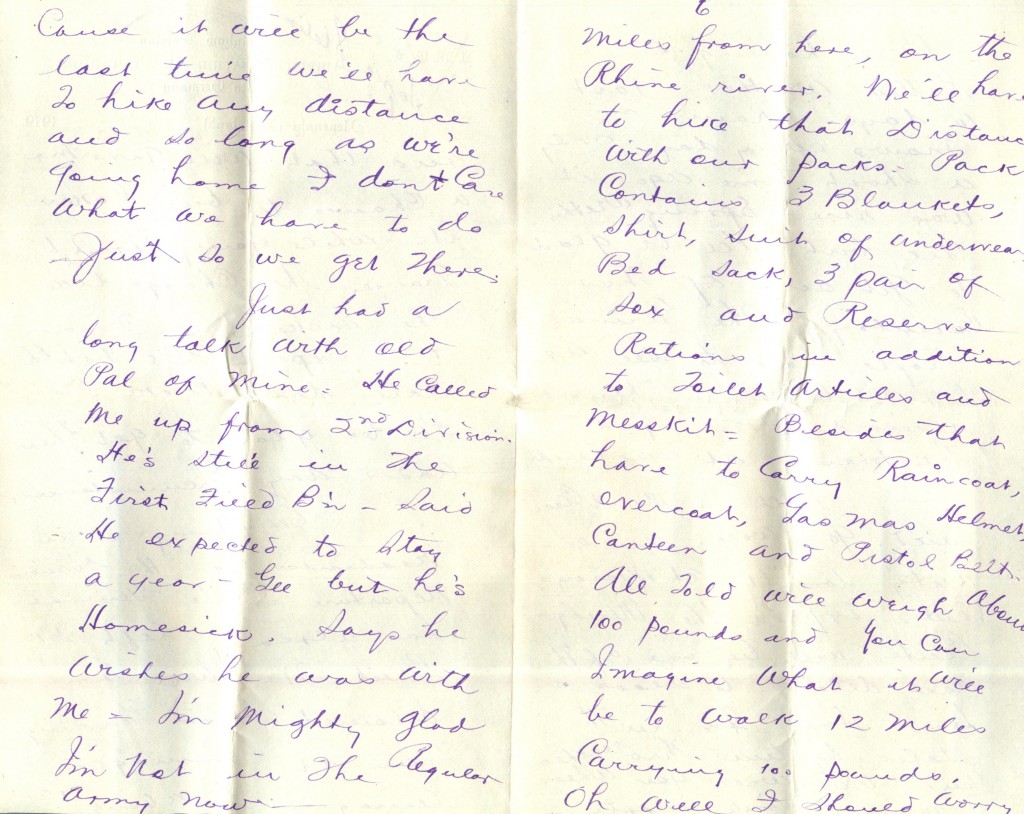 Cause it will be the
last time we'll have
To hike any distance
and so long as we're
going home I don't Care
What we have to do
Just so we get There.
Just had a
long talk with old
Pal of Mine = He Called
Me up from 2nd Division.
He's still in the
First Field B'n - Said
He expected to stay
a year - Gee but he's
Homesick. Says he
wishes he was with
Me = I'm Mighty glad
I'm Not in The Regular
Army Now
6
Miles from here, on the
Rhine river. We'll have
to hike that Distanc
with our packs. Pack
Contains 3 Blankets,
Shirt, Suit of underwear
Bed Sack, 3 pair of
Sox and Reserve
Rations in addition
to Toilet Articles and
Messkit = Besides that
have to Carry Raincoat,
overcoat, Gas mas Helmet,
Canteen and Pistol Belt.
All Told will weigh About
100 pounds and You Can
Imagine What it will
be to walk 12 Miles
Carrying 100 pounds.
Oh Well I Should Worry